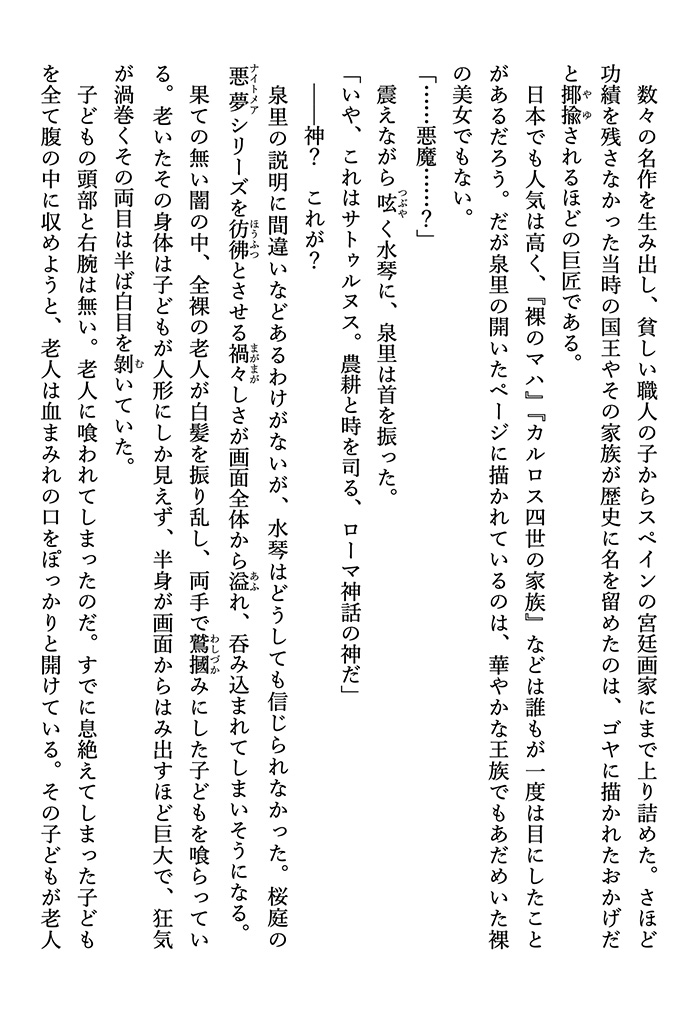 数々の名作を生み出し、貧しい職人の子からスペインの宮廷画家にまで上り詰めた。さほど
功績を残さなかった当時の国王やその家族が歴史に名を留めたのは、ゴヤに描かれたおかげだ
と揶揄されるほどの巨匠である。
　日本でも人気は高く、『裸のマハ』『カルロス四世の家族』などは誰もが一度は目にしたこと
があるだろう。だが泉里の開いたページに描かれているのは、華やかな王族でもあだめいた裸
の美女でもない。
「……悪魔……？」
　震えながら呟く水琴に、泉里は首を振った。
「いや、これはサトゥルヌス。農耕と時を司る、ローマ神話の神だ」
　――神？　これが？
　泉里の説明に間違いなどあるわけがないが、水琴はどうしても信じられなかった。桜庭の
悪夢シリーズを彷彿とさせる禍々しさが画面全体から溢れ、呑み込まれてしまいそうになる。
　果ての無い闇の中、全裸の老人が白髪を振り乱し、両手で鷲摑みにした子どもを喰らってい
る。老いたその身体は子どもが人形にしか見えず、半身が画面からはみ出すほど巨大で、狂気
が渦巻くその両目は半ば白目を剝いていた。
　子どもの頭部と右腕は無い。老人に喰われてしまったのだ。すでに息絶えてしまった子ども
を全て腹の中に収めようと、老人は血まみれの口をぽっかりと開けている。その子どもが老人